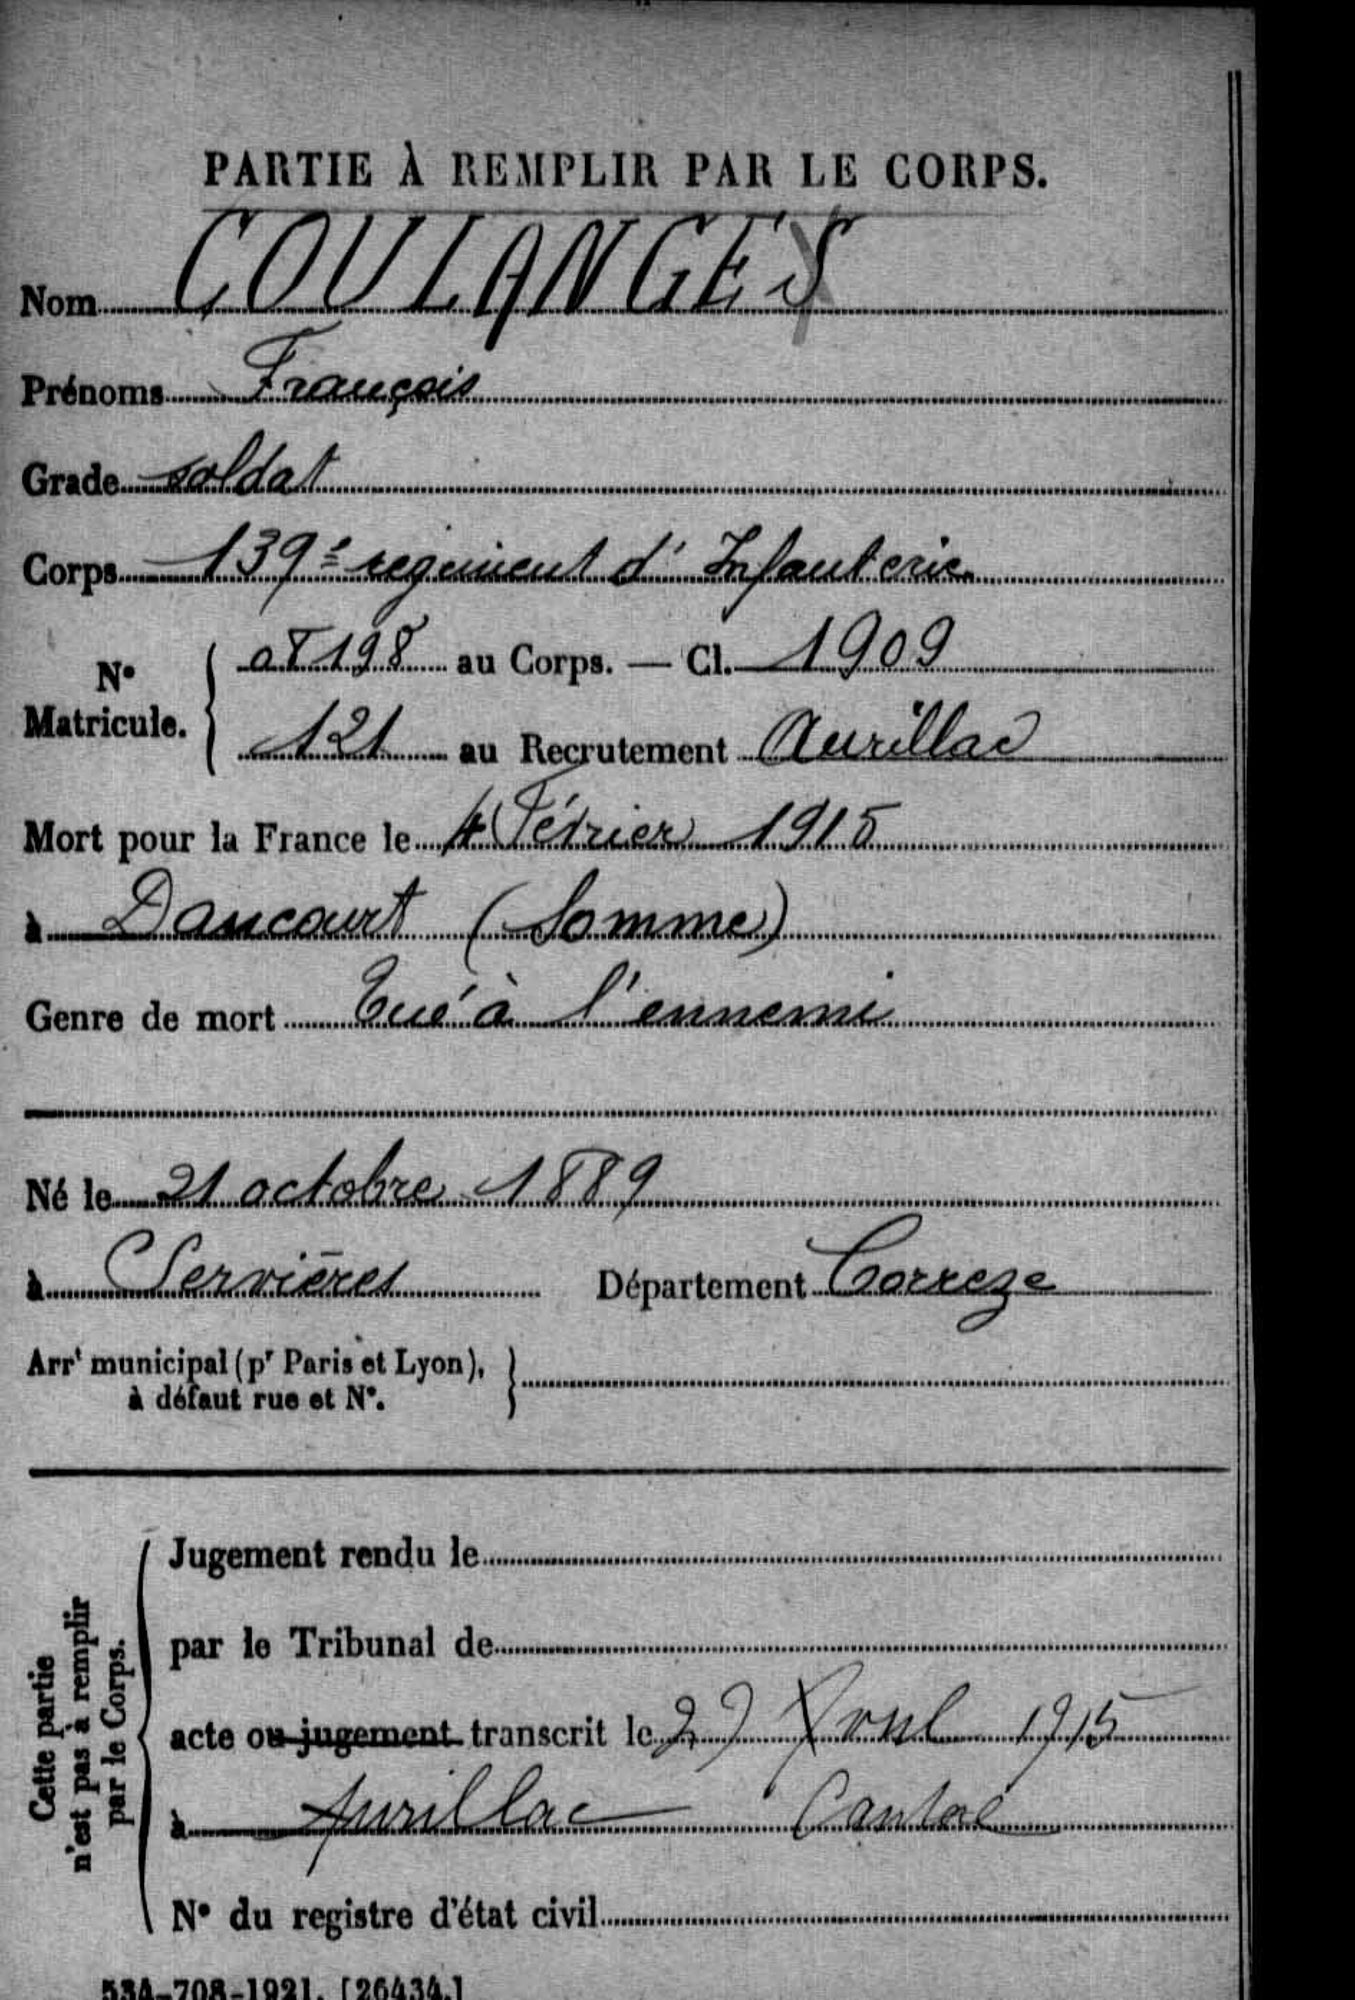 PARTIE À REMPLIR PAR LE CORPS.
Nom COULANGES
Prénoms François
Grade soldat
Corps 139e regiment d'Infanterie
N° Matricule. 08198 au Corps. — Cl. 1909
121 au Recrutement Aurillac
Mort pour la France le 4 Février 1915
à Dancourt (Somme)
Genre de mort Tué à l'ennemi
Né le 21 octobre 1889
à Servières Département Correze
Arrt municipal (pr Paris et Lyon),
à défaut rue et N°.
Cette partie
n'est pas à remplir
par le Corps.
Jugement rendu le
par le Tribunal de
acte ou jugement transcrit le 27 Avril 1915
à Aurillac Cantal
N° du registre d'état civil
534-708-1921. [26434.]